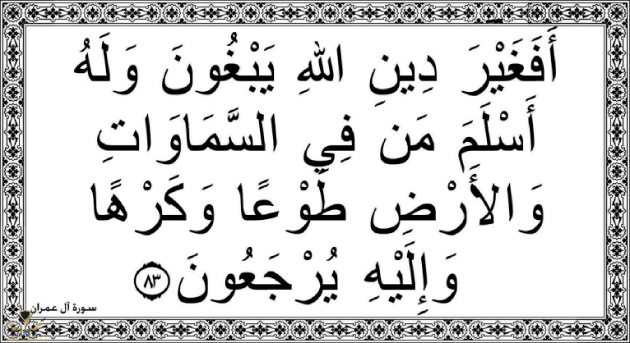 أَفَغَيْرَ دِينِ اللهِ يَبْغُونَ وَلَهُ
أَسْلَمَ مَن فِي السَّمَاوَاتِ
وَالأَرْضِ طَوْعًا وَكَرْهًا
وَإِلَيْهِ يُرْجَعُونَ ٨٣
سورة آل عمران